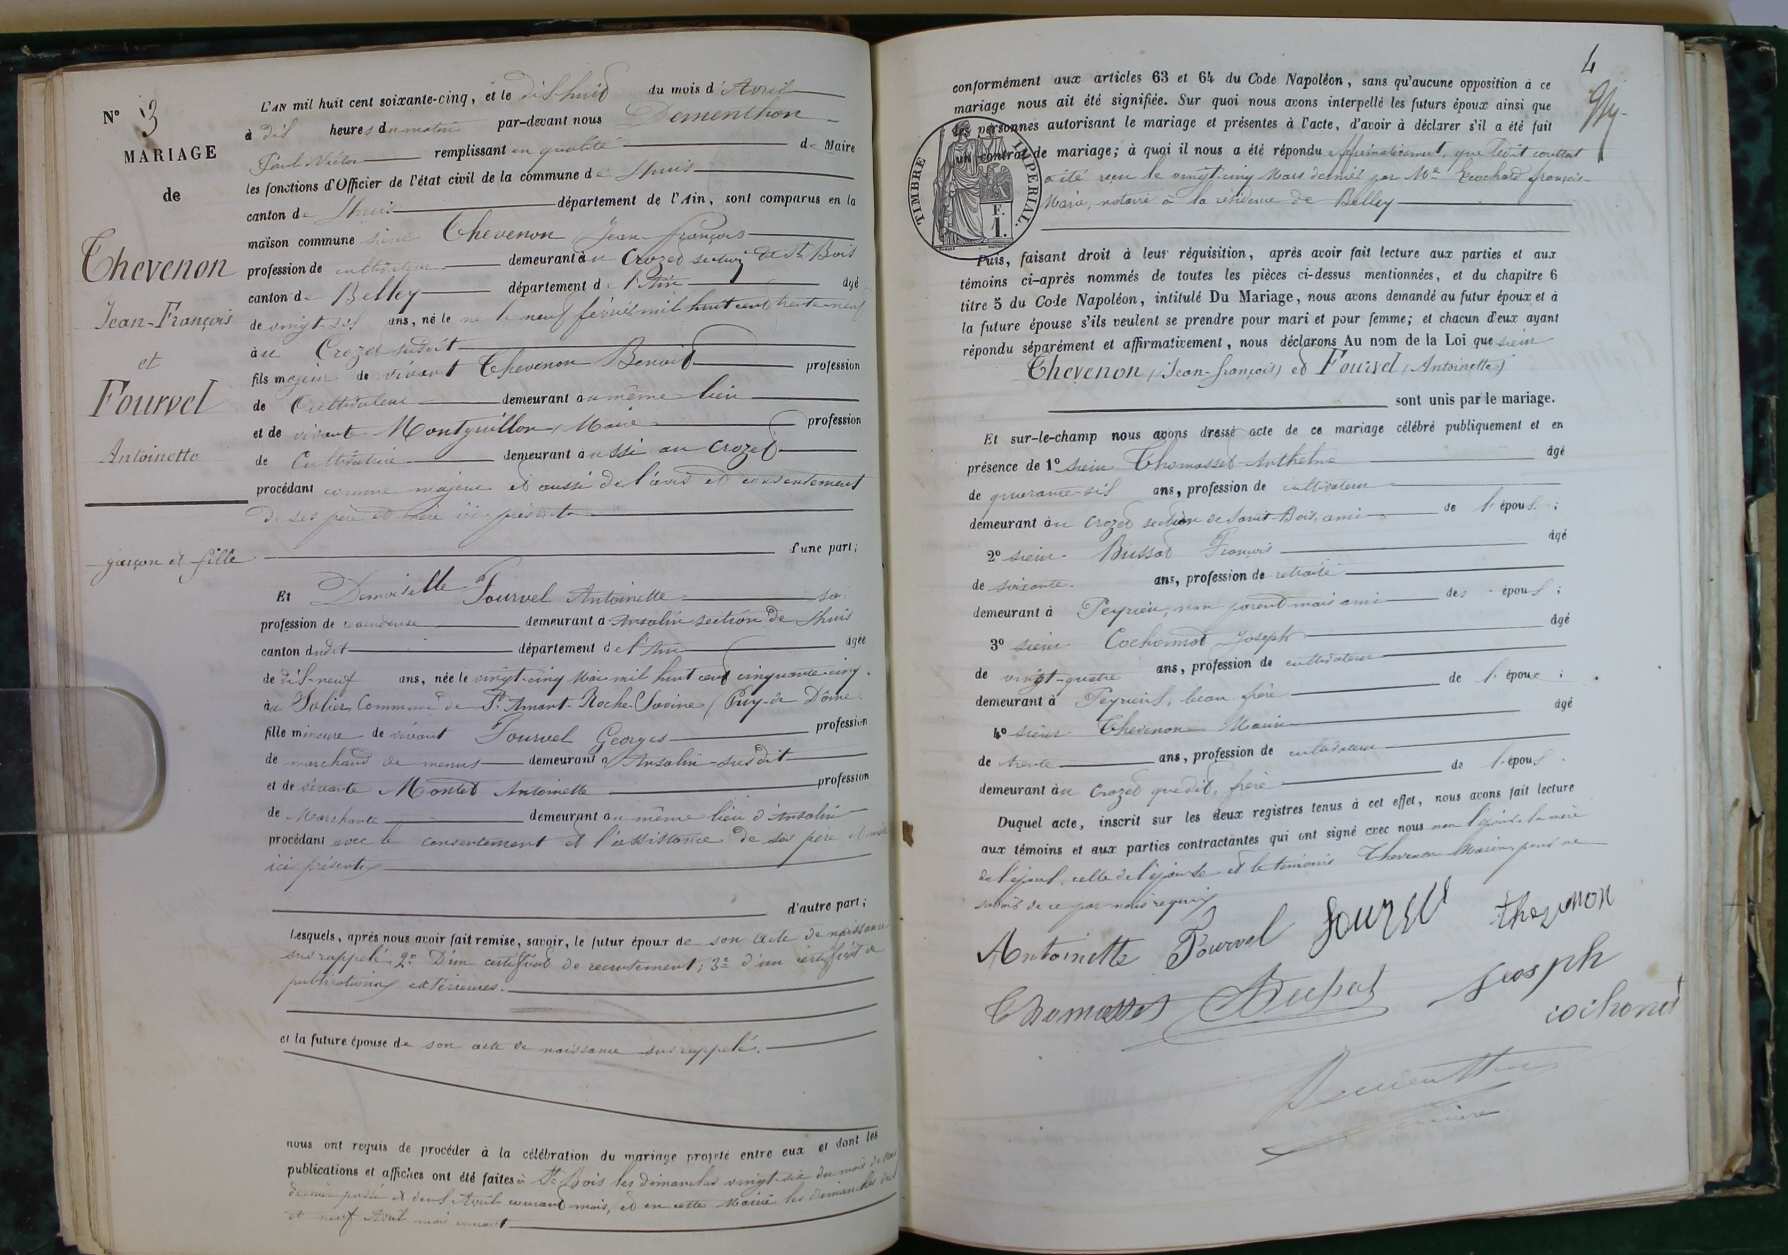 N° 3
MARIAGE
de
Thevenon
Jean-François
et
Fourvel
Antoinette
garçon et fille
L'AN mil huit cent soixante-cinq, et le dix-huit du mois d'Avril
à dix heures du matin par-devant nous Dementhon
Paul Victor remplissant en qualité de Maire
les fonctions d'Officier de l'état civil de la commune de Lhuis
canton de Lhuis département de l'Ain, sont comparus en la
maison commune sieur Thevenon Jean-françois
profession de cultivateur demeurant au Crozet section de St Bois
canton de Belley département de l'Ain âgé
de vingt-six ans, né le neuf février mil huit cent trente-neuf
au Crozet susdit
fils majeur de vivant Thevenon Benoit profession
de Cultivateur demeurant au même lieu
et de vivante Montguillon Marie profession
de Cultivatrice demeurant aussi au Crozet
procédant comme majeur et aussi de l'avis et consentement
de ses père et mère ici présents
d'une part;
Et Demoiselle Fourvel Antoinette sa
profession de demeurant à Ansolin section de Lhuis
canton dudit département de l'Ain âgée
de dix-neuf ans, née le vingt-cinq mai mil huit cent cinquante-cinq
à Commune de St Amant-Roche-Savine (Puy-de-Dôme
fille mineure de vivant Fourvel Georges profession
de marchand de menus demeurant à Ansolin susdit
et de vivante Montet Antoinette profession
de Marchande demeurant au même lieu d'Ansolin
procédant avec le consentement et l'assistance de ses père et mère
ici présents
d'autre part;
Lesquels, après nous avoir fait remise, savoir, le futur époux de son acte de naissance
susrappelé, 2° D'un certificat de recrutement; 3° d'un certificat de
publications extérieures.
et la future épouse de son acte de naissance susrappelé.
nous ont requis de procéder à la célébration du mariage projeté entre eux et dont les
publications et affiches ont été faites à St Bois les dimanches vingt-six du mois de Mars
dernier passé et deux Avril courant mois, et en cette Mairie les dimanches deux
et neuf Avril mois courant
4
conformément aux articles 63 et 64 du Code Napoléon, sans qu'aucune opposition à ce
mariage nous ait été signifiée. Sur quoi nous avons interpellé les futurs époux ainsi que
les personnes autorisant le mariage et présentes à l'acte, d'avoir à déclarer s'il a été fait
un contrat de mariage; à quoi il nous a été répondu affirmativement, que ledit contrat
a été reçu le vingt-cinq Mars dernier par Me françois-
Marie, notaire à la résidence de Belley
TIMBRE IMPERIAL.
F.
1.
Puis, faisant droit à leur réquisition, après avoir fait lecture aux parties et aux
témoins ci-après nommés de toutes les pièces ci-dessus mentionnées, et du chapitre 6
titre 5 du Code Napoléon, intitulé Du Mariage, nous avons demandé au futur époux et à
la future épouse s'ils veulent se prendre pour mari et pour femme; et chacun d'eux ayant
répondu séparément et affirmativement, nous déclarons Au nom de la Loi que sieur
Thevenon (Jean-françois) et Fourvel (Antoinette)
sont unis par le mariage.
Et sur-le-champ nous avons dressé acte de ce mariage célébré publiquement et en
présence de 1° sieur Thomasset Anthelme âgé
de quarante-six ans, profession de cultivateur
demeurant au Crozet section de Saint-Bois, ami de l'époux;
2° sieur Bussot François âgé
de soixante ans, profession de retraité
demeurant à Peyrieu, non parent mais ami des époux;
3° sieur Cochonat Joseph âgé
de vingt-quatre ans, profession de cultivateur
demeurant à Peyrieu, beau-frère de l'époux;
4° sieur Thevenon Marin âgé
de trente ans, profession de cultivateur
demeurant au Crozet que dit, frère de l'époux.
Duquel acte, inscrit sur les deux registres tenus à cet effet, nous avons fait lecture
aux témoins et aux parties contractantes qui ont signé avec nous non l'époux, la mère
de l'époux, celle de l'épouse et le témoin Thevenon Marin pour ne
savoir de ce par nous requis
Antoinette Fourvel Fourvel thevenon
Thomasset Bussot Joseph
cochonat
Dementhon
maire